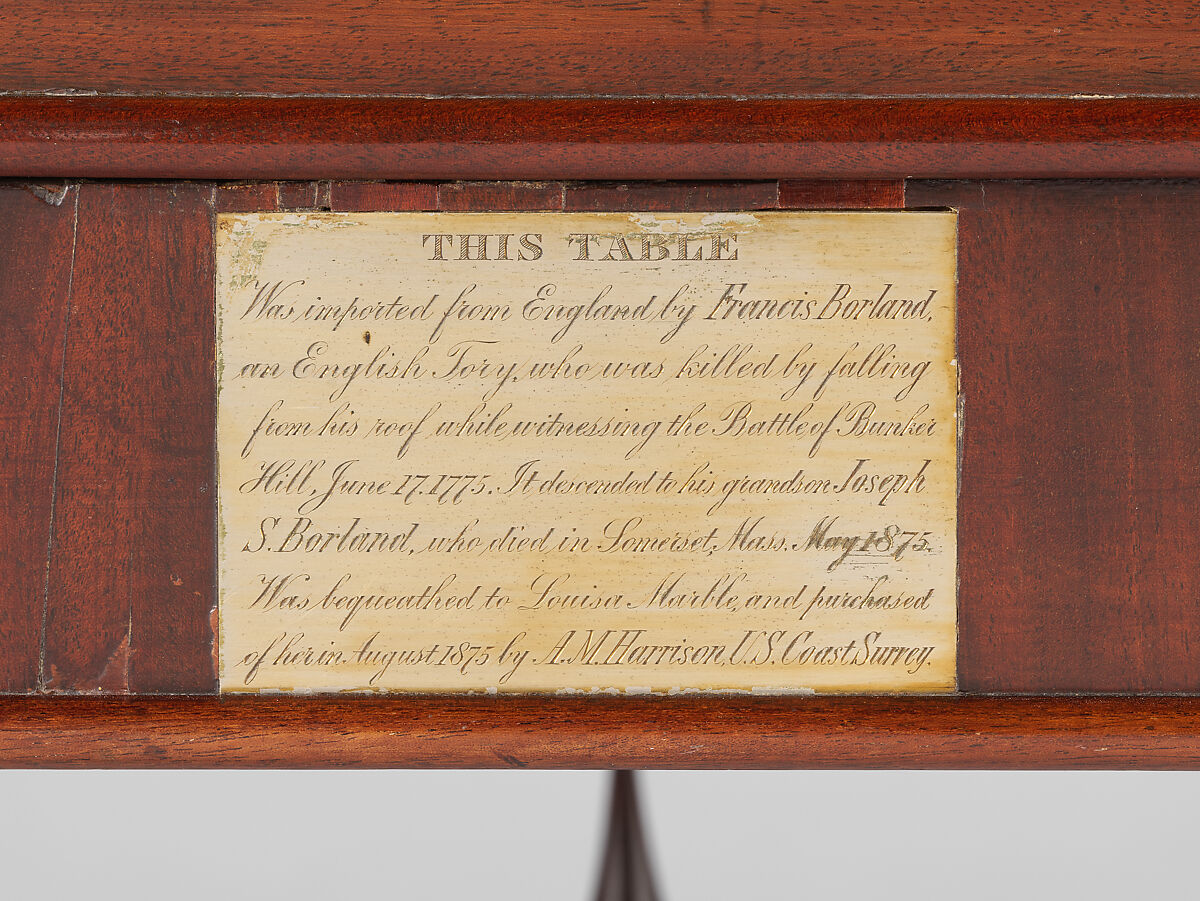 THIS TABLE
Was imported from England by Francis Borland,
an English Tory, who was killed by falling
from his roof while witnessing the Battle of Bunker
Hill, June 17, 1775. It descended to his grandson Joseph
S. Borland, who died in Somerset, Mass. May 1875.
Was bequeathed to Louisa Marble, and purchased
of her in August 1875 by A. M. Harrison, U.S. Coast Survey.